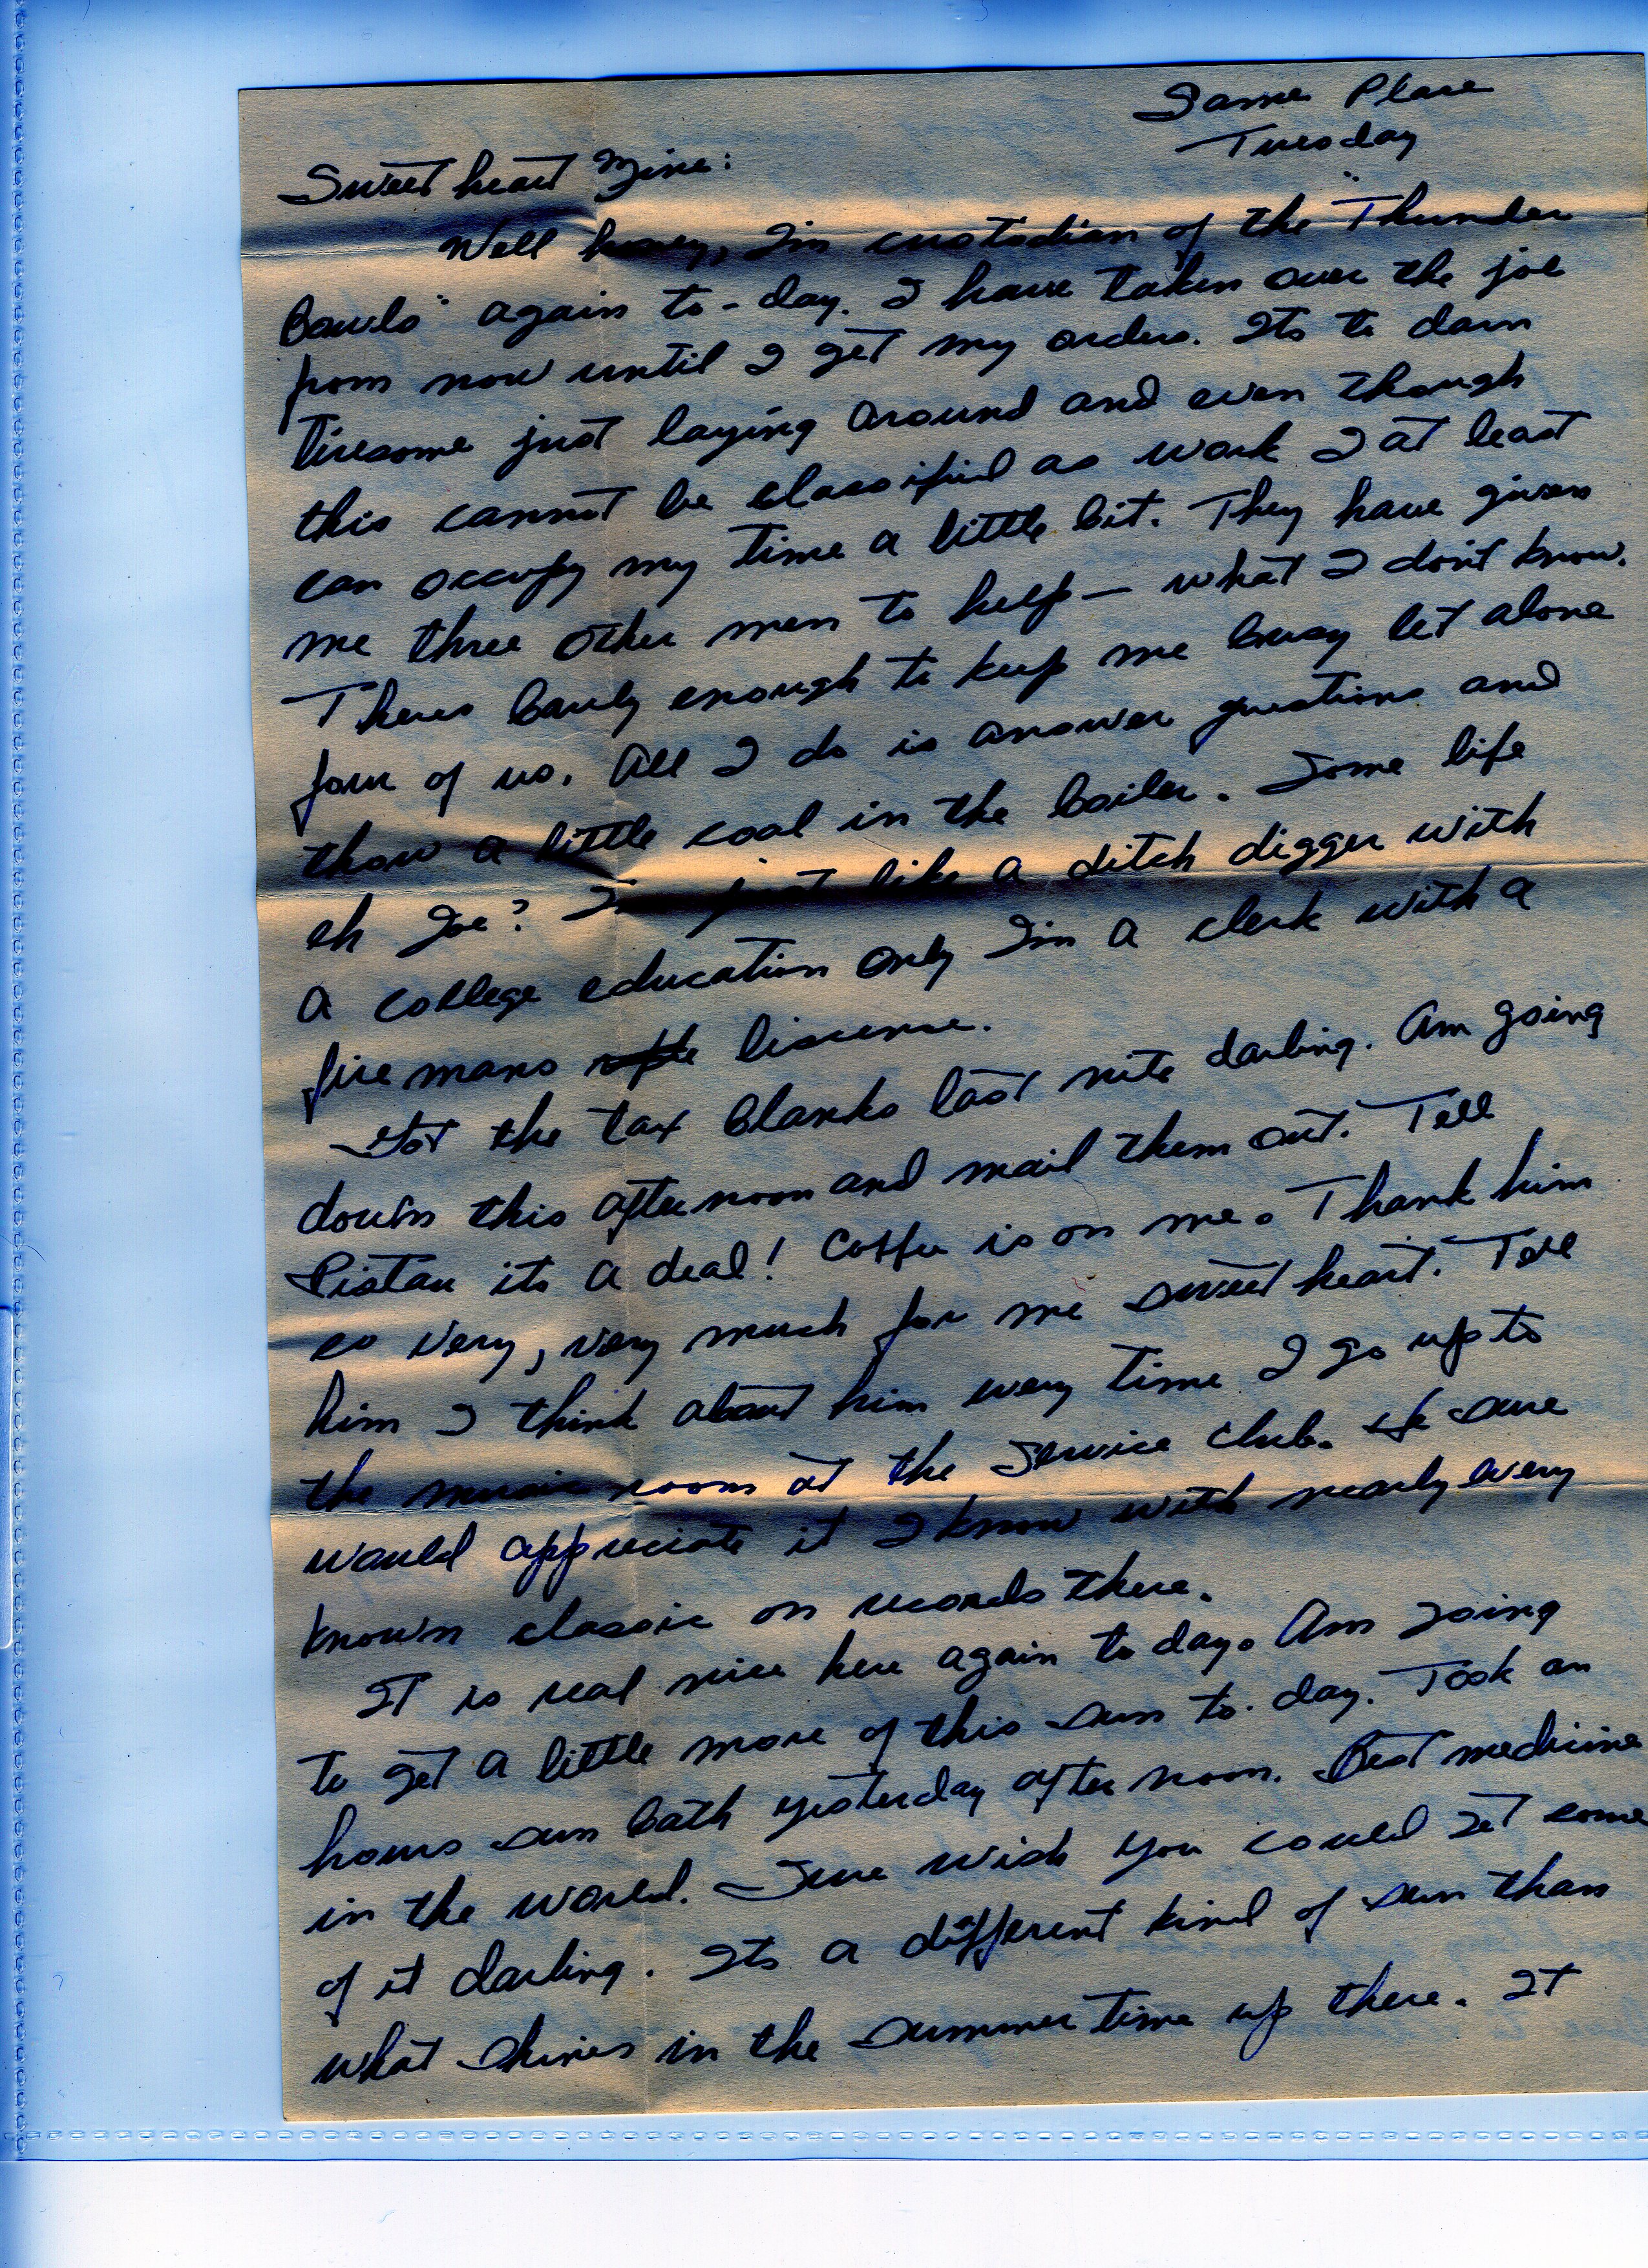 Same Place
Tuesday
Sweet heart Mine:
Well honey, Im custodian of the "Thunder
Bowls" again to-day. I have taken over the joe
from now until I get my orders. Its to darn
tiresome just laying around and even though
this cannot be classified as work I at least
can occupy my time a little bit. They have given
me three other men to help — what I don't know.
Theres barely enough to keep me busy let alone
four of us. All I do is answer questions and
thow a little coal in the boiler. Some life
eh Joe? Im just like a ditch digger with
a college education only Im a clerk with a
fire mans liscense.
Got the tax blanks last nite darling. Am going
down this afternoon and mail them out. Tell
its a deal! Coffee is on me. Thank him
so very, very much for me sweet heart. Tell
him I think about him every time I go up to
the music room at the Service Club. He sure
would appreciate it I know with nearly every
known classic on records there.
It is real nice here again to day. Am going
to get a little more of this sun to-day. Took an
hours sun bath yesterday after noon. Best medicine
in the world. Sure wish you could get some
of it darling. Its a different kind of sun than
what shines in the summer time up there. It